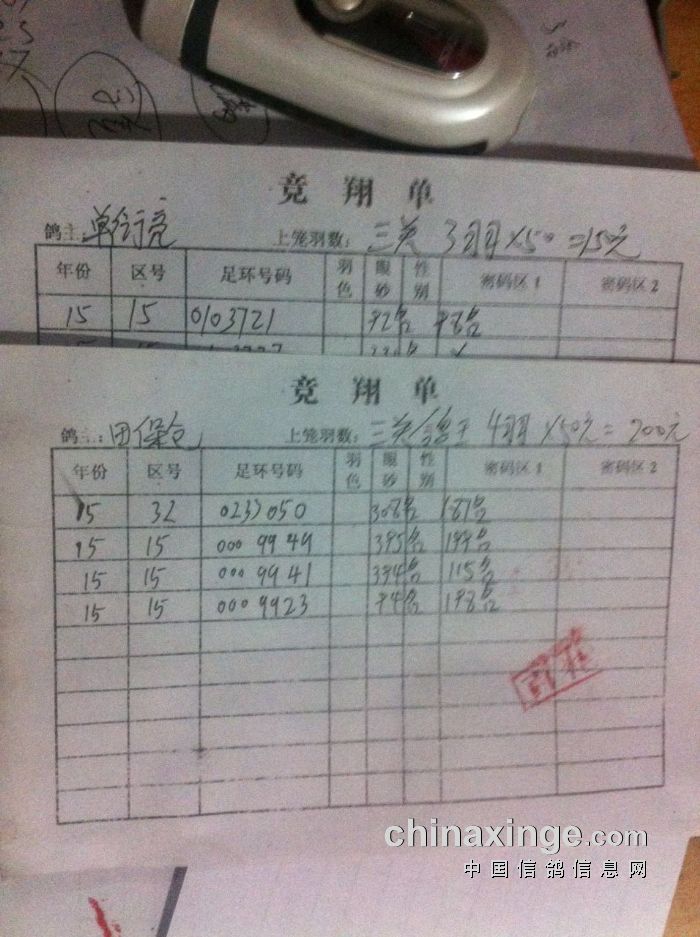 竞翔单
鸽主： 上笼羽数：三关 3羽×50=150元
年份 区号 足环号码 羽色 眼砂 性别 密码区1 密码区2
15 15 0103721 72名 78名
竞翔单
鸽主：田保仓 上笼羽数：三关鸽王 4羽×50元=200元
年份 区号 足环号码 羽色 眼砂 性别 密码区1 密码区2
15 32 0233050 308名 187名
15 15 0009949 395名 199名
15 15 0009941 394名 115名
15 15 0009923 74名 178名
chinaxinge.com
中国信鸽信息网